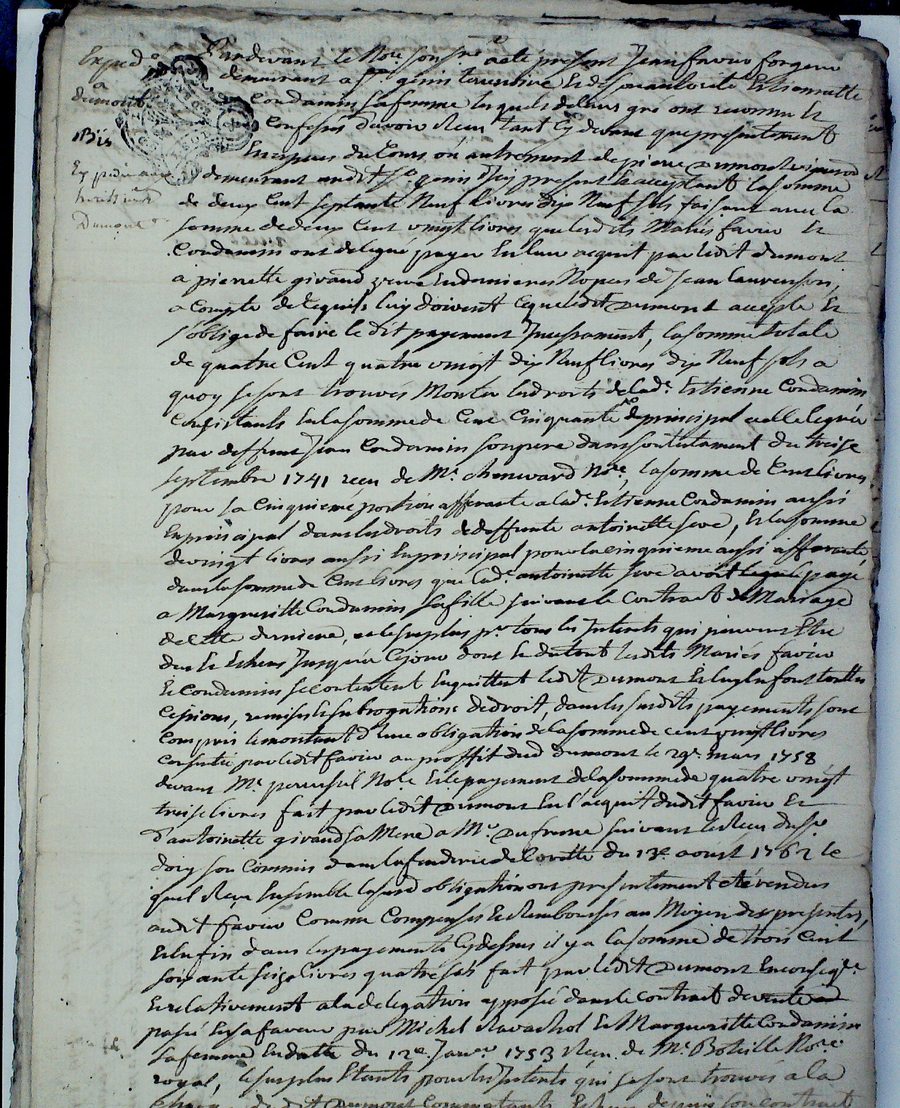 Exped
a
dumont
Bis
Pardevant le Nore soussne a été present Jean favier forgeur
demeurant a st genis terrenoire et de son autorité Estiennette
Condamin sa femme lesquels de leur gré ont reconnu et
Confessé d'avoir Reçu tant cy devant que presentement
En especes du Cours ou autrement de pierre Dumont
demeurant audit st genis Icy present & acceptant la somme
de deux Cent septante Neuf livres dix Neuf sols faisant avec la
somme de deux Cent vingt livres que lesdits Mariés favier et
Condamin ont delegué payer En leur acquit par ledit dumont
a pierrette giraud veuve Jean laurenson,
a compte de ce qu'ils luy doivent Ce que ledit Dumont accepte Et
s'oblige de faire le dit payement Incessament, la somme totale
de quatre Cent quatre vingt dix Neuf livres dix Neuf sols a
quoy se sont trouvés Monter les droits de lad. Estienne Condamin
Consistants En la somme de Cent Cinquante # de principal a elle leguée
par deffunt Jean Condamin son pere dans son testament du treise
septembre 1741 reçu de Me chenevard Nore, la somme de Cent livres
pour sa Cinquieme portion afferante a lad. Estienne Condamin aussi
En principal dans les droits de deffunte antoinette seve, Et la somme
de vingt livres aussi En principal pour la cinquieme aussi afferante
dans la somme de Cent livres que lad. antoinette seve avoit payé
a Margueritte Condamin sa fille suivant le Contract de Mariage
de cette derniere, et le surplus pr tous les Interets qui peuvent Etre
dus Et Echeus Jusqu'a ce jour dont du tout lesdits Mariés favier
Et Condamin se contentent En quittent ledit Dumont Et luy En font toutes
Cessions, remises & subrogations de droit, dans les susdits payements sont
Compris le montant d'une obligation de la somme de cent vingt livres
Consentie par ledit favier au proffit dud dumont le 29e. mars 1758
devant Me Nore Et le payement de la somme de quatre vingt
treise livres fait par ledit Dumont En l'acquit dudit favier Et
d'antoinette giraud sa Mere a Mr. Dufrene suivant le Reçu du sr
son Commis dans la fenderie de lorette du 13e. aoust 1762 le
quel Reçu Ensemble lasusd obligation ont presentement été rendus
audit favier Comme Compensés Et Remboursés au Moyen des presentes,
Et Enfin dans les payements cy dessus il y a la somme de trois Cent
soixante seize livres quatre sols fait par ledit Dumont En conseqce
Et relativement a la delegation apposée dans le contrat de vente
passé En sa faveur par Michel Ravachol Et Margueritte Condamin
sa femme En datte du 12e. Janv. 1753 Reçu de Me Boteille Nore
royal, le surplus Etants pour les Interets qui se sont trouvés a la
charge dudit Dumont son contrat